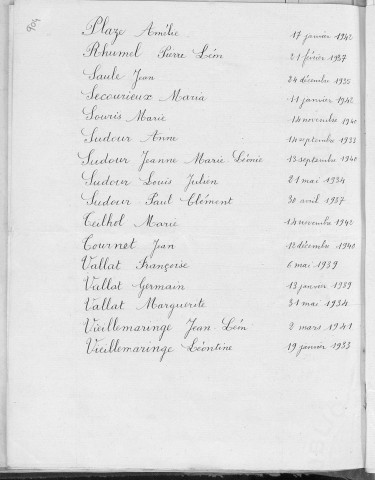 904
Plaze Amélie 17 janvier 1942
Rhumel Pierre Léon 21 février 1937
Saule Jean 24 décembre 1935
Secourieux Maria 11 janvier 1942
Souris Marie 14 novembre 1940
Sudour Anne 14 septembre 1933
Sudour Jeanne Marie Léonie 13 septembre 1940
Sudour Louis Julien 21 mai 1934
Sudour Paul Clément 30 avril 1937
Teilhol Marie 14 novembre 1942
Tournet Jean 12 décembre 1940
Vallat Françoise 6 mai 1939
Vallat Germain 13 janvier 1939
Vallat Marguerite 31 mai 1934
Vieillemaringe Jean Léon 2 mars 1941
Vieillemaringe Léontine 19 janvier 1933